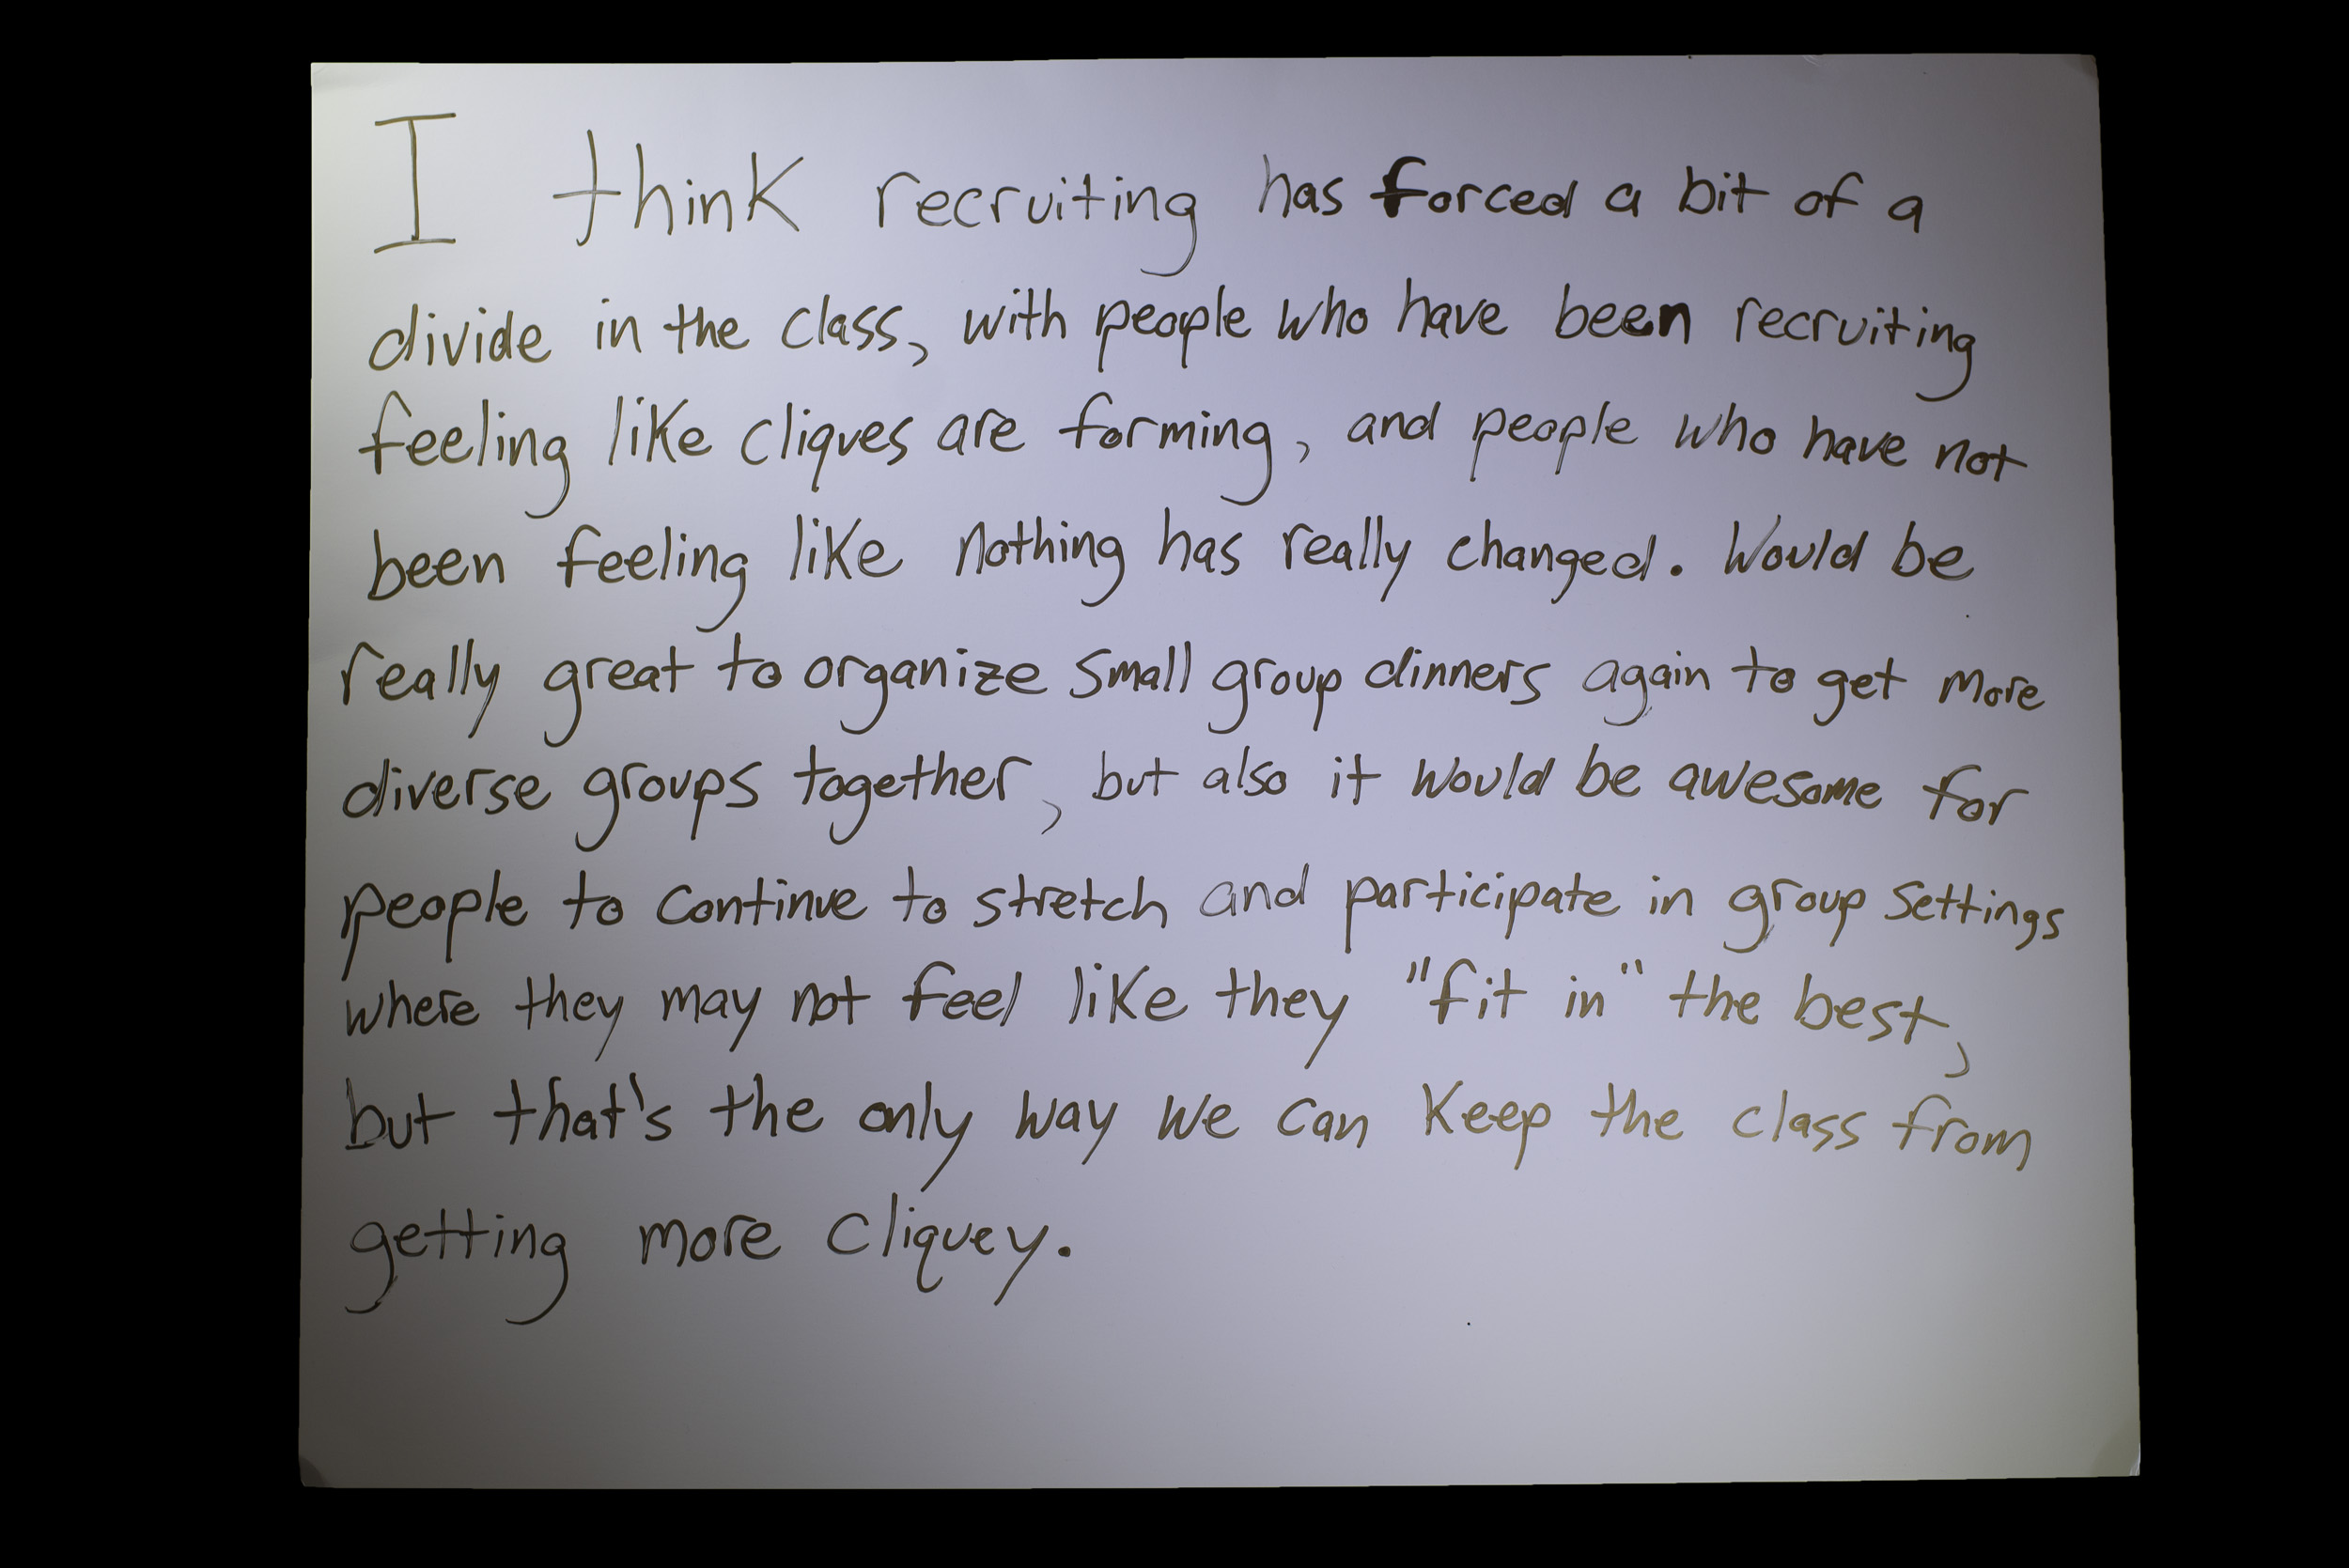 I think recruiting has forced a bit of a
divide in the class, with people who have been recruiting
feeling like cliques are forming, and people who have not
been feeling like nothing has really changed. Would be
really great to organize small group dinners again to get more
diverse groups together, but also it would be awesome for
people to continue to stretch and participate in group settings
where they may not feel like they "fit in" the best,
but that's the only way we can keep the class from
getting more cliquey.